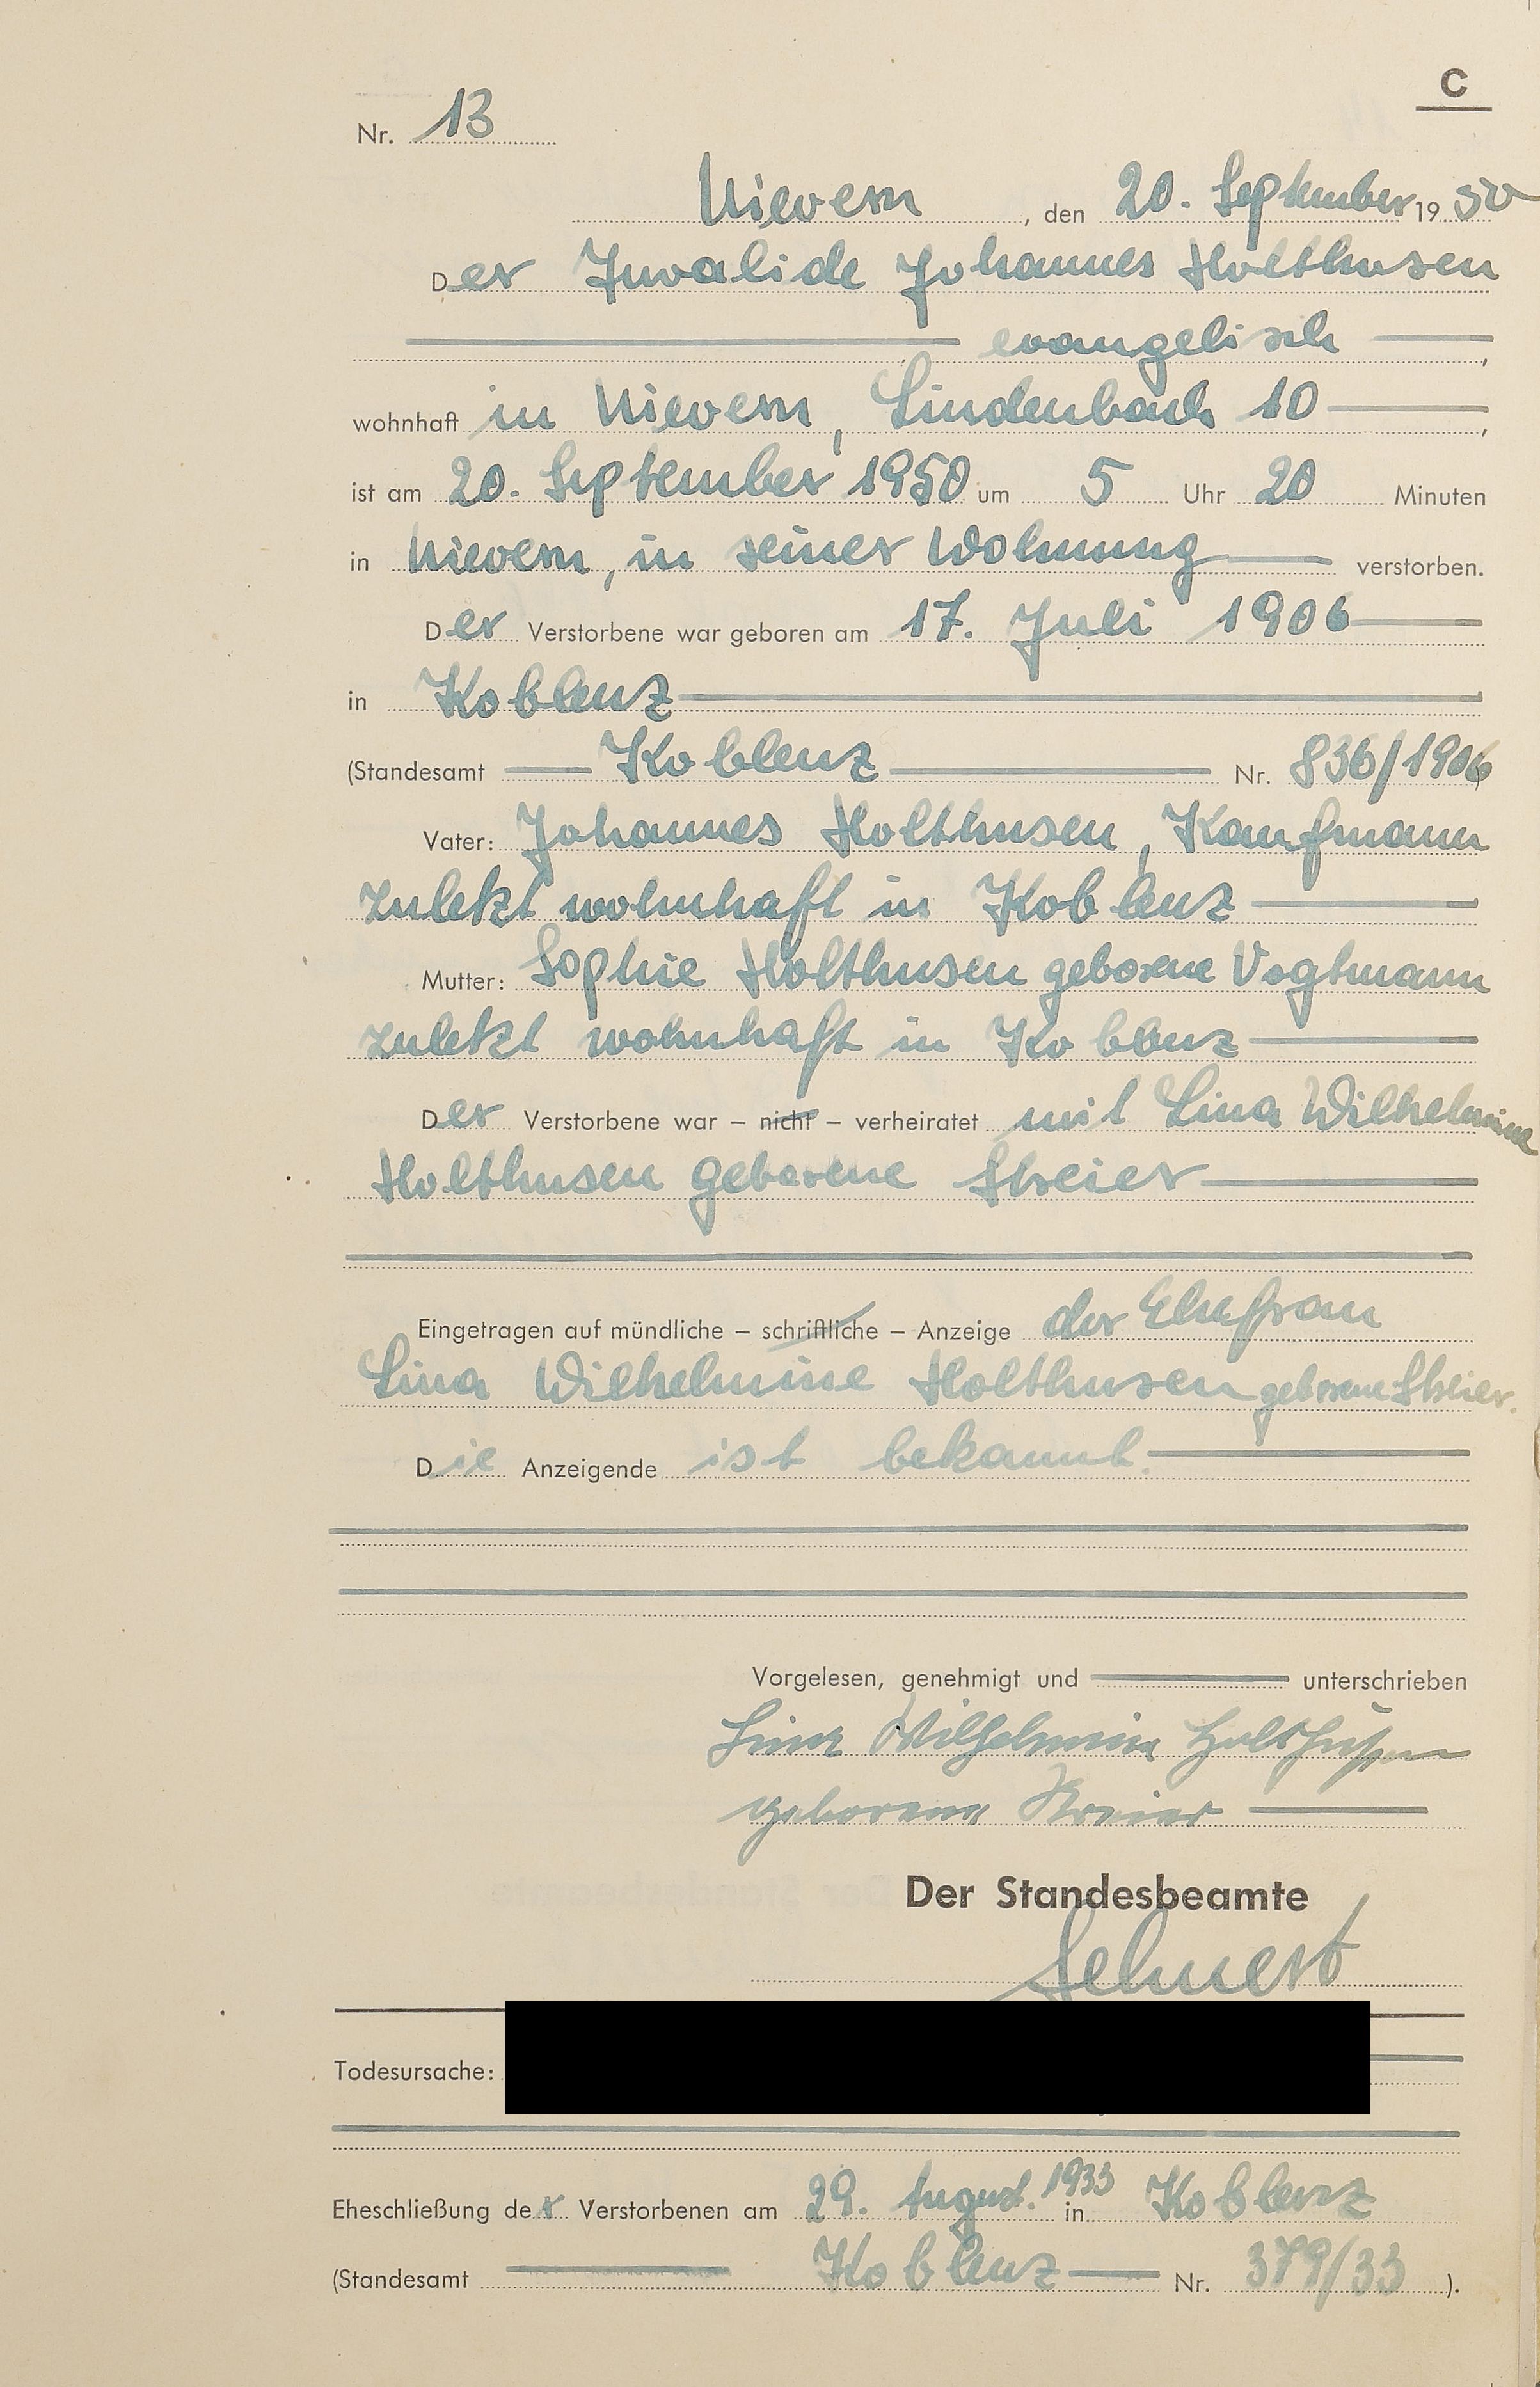 C
Nr. 13
Nievern, den 20. September 1950
Der Invalide Johannes Holthusen
evangelisch,
wohnhaft in Nievern, Lindenbach 10,
ist am 20. September 1950 um 5 Uhr 20 Minuten
in Nievern, in seiner Wohnung verstorben.
Der Verstorbene war geboren am 17. Juli 1906
in Koblenz
(Standesamt Koblenz Nr. 836/1906)
Vater: Johannes Holthusen, Kaufmann
zuletzt wohnhaft in Koblenz
Mutter: Sophie Holthusen geborene Vogtmann
zuletzt wohnhaft in Koblenz
Der Verstorbene war – nicht – verheiratet mit Lina Wilhelmine
Holthusen geborene Streier
Eingetragen auf mündliche – schriftliche – Anzeige der Ehefrau
Lina Wilhelmine Holthusen geborene Streier.
Die Anzeigende ist bekannt.
Vorgelesen, genehmigt und unterschrieben
Lina Wilhelmine Holthusen
geborene Streier
Der Standesbeamte
Todesursache:
Eheschließung des Verstorbenen am 29. August 1933 in Koblenz
(Standesamt Koblenz Nr. 379/33).